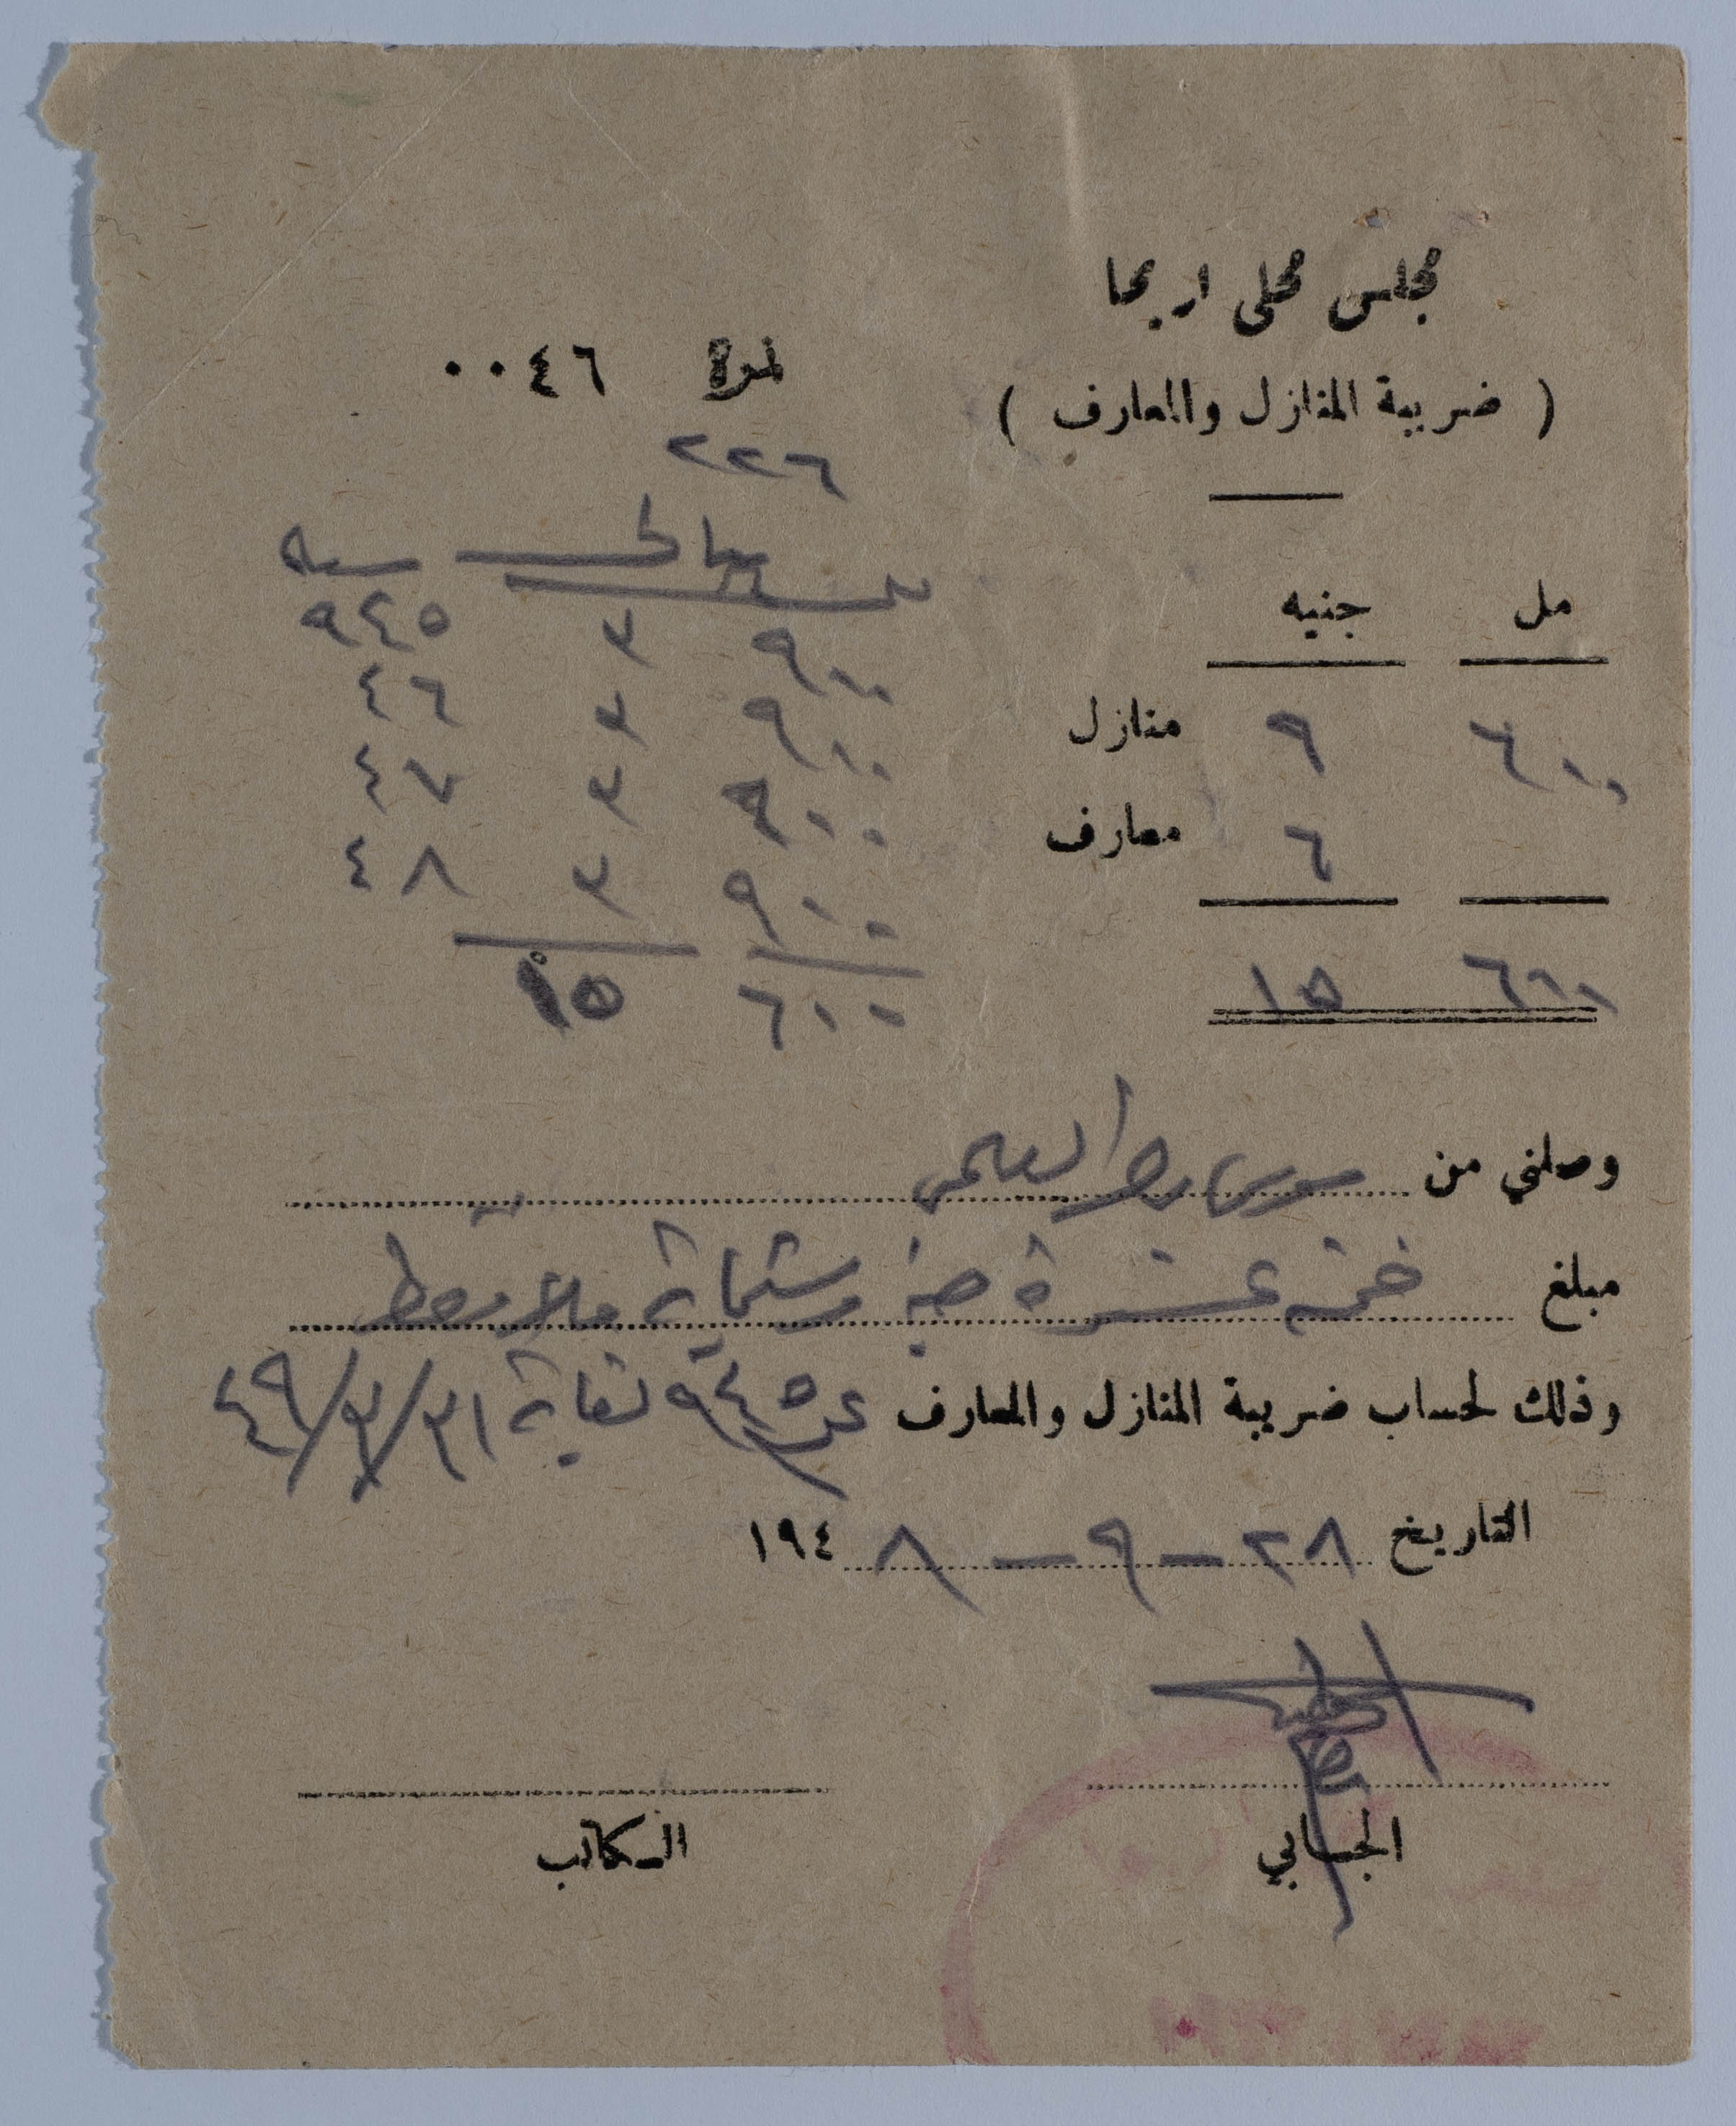 مجلس محلي اريحا
نمرة ٠٠٤٦
( ضريبة المنازل والمعارف )
٢٢٦
مل جنيه
٦٠٠ ٩ منازل
٦ معارف
٦٠٠ ١٥
سنة
٩٠٠ ٣ ٩٤٥
٩٠٠ ٣ ٤٦
٩٠٠ ٣ ٤٧
٩٠٠ ٣ ٤٨
٦٠٠ ١٥
وصلني من موسى العلمي
مبلغ خمسة عشرة جنيه وستماية ملا فقط
وذلك لحساب ضريبة المنازل والمعارف عن ٩٤٥ لغاية ٣١/٣/٤٩
التاريخ ٢٨ - ٩ - ١٩٤٨
الجابي
الكاتب